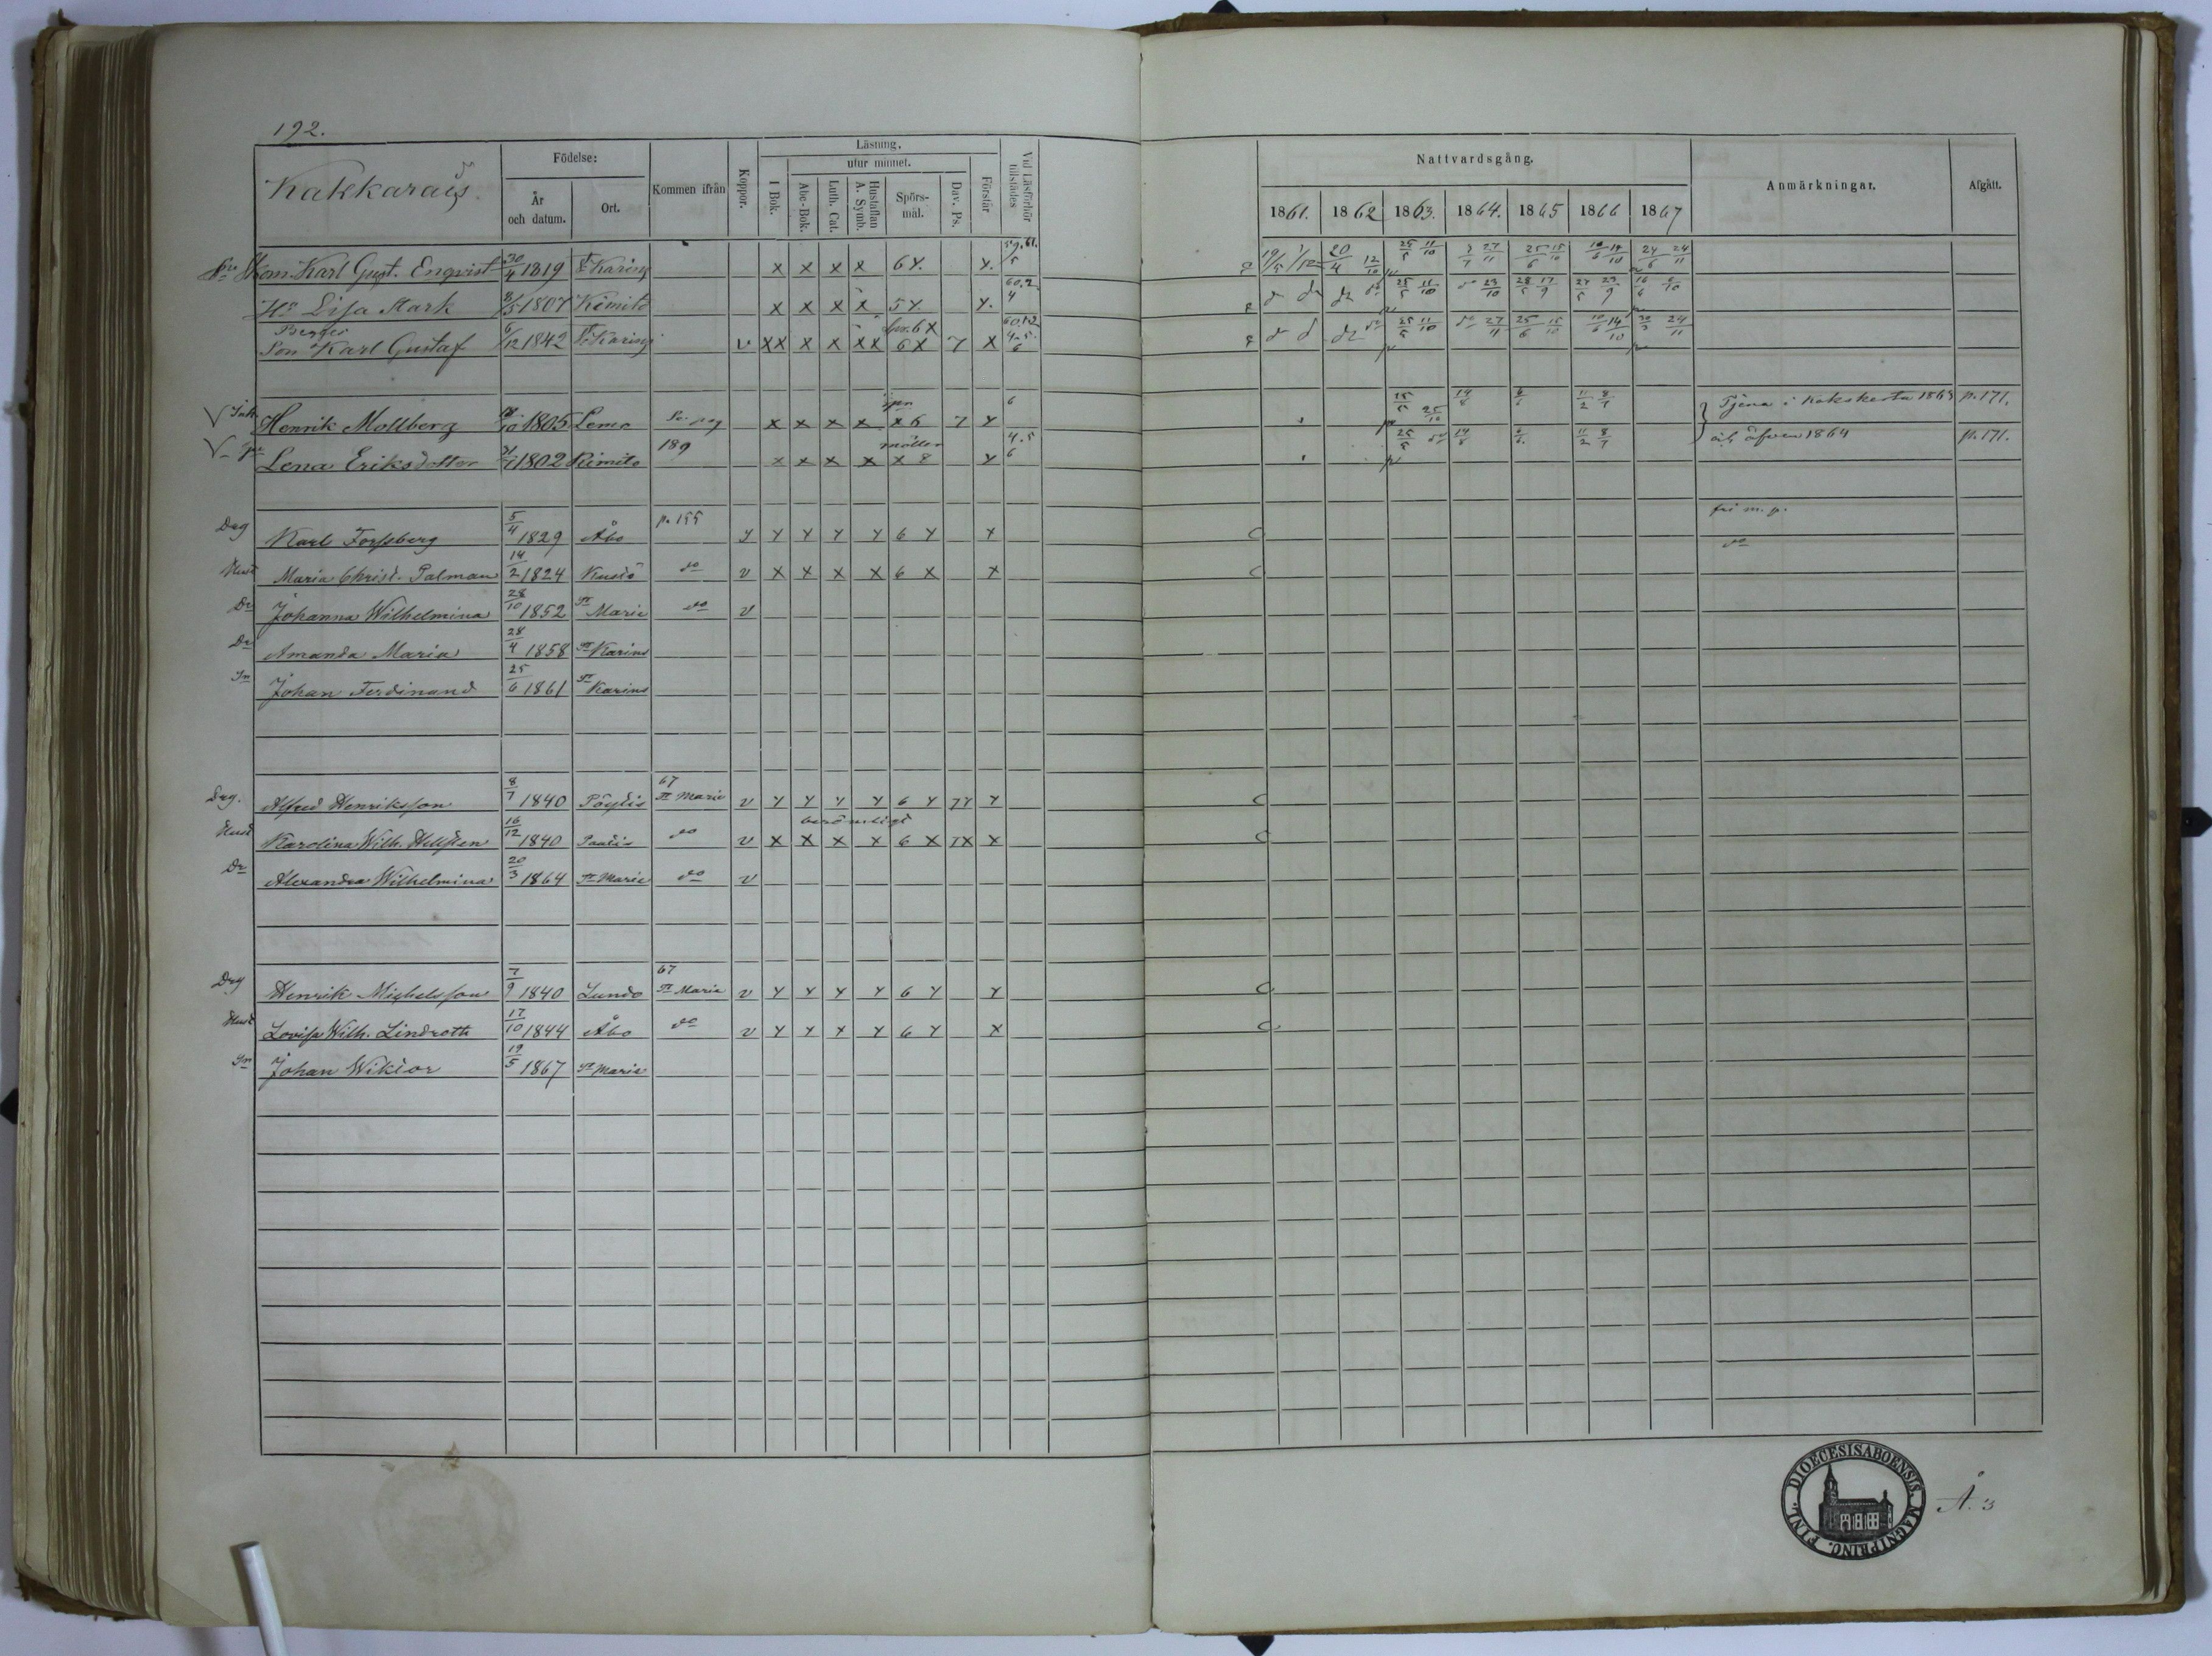 192.
Kakkarais
Födelse:
År och datum.
Ort.
Kommen ifrån
Koppor.
Läsning.
utur minnet.
I Bok.
Abc-Bok.
Luth. Cat.
Hustaflan A. Symb.
Spörsmål.
Dav. Ps.
Förstår
Vid Läsförhör tillstädes
Nattvardsgång.
1861. 1862 1863. 1864. 1865 1866 1867
Anmärkningar.
Afgått.
Karl Gust. Enqvist 30/4 1819 St Karins x x x x 6 y. y. 19/5 1/12 20/4 12/10 25/5 11/10 3/7 27/11 25/6 15/10 10/6 14/10 24/6 24/11
Hu Lisa Stark 1807 Kimito x x x x 5 y. y. 25/5 11/10 do 23/10 28/5 17/9 27/5 23/9
Son Karl Gustaf 6/12 1842 St Karins v xx x x xx 6 x 7 x 25/5 11/10 do 27/11 25/6 15/10 10/6 14/10 30/3 24/11
Inh. Henrik Mollberg 1805 Lemo x x x x x 6 7 y 6 14/8 11/2 8/7 Tjena i Kakskerta 1863 p. 171.
Lena Eriksdotter 1802 Kimito 189 x x x x x 8 y 4.5 6 25/5 do 14/8 11/2 8/7 och äfven 1864 p. 171.
Drg Karl Forssberg 5/4 1829 Åbo p. 155 y y y y y 6 y y C fri m. p.
Hust Maria Christ. Palman 14/2 1824 Kustö do v x x x x 6 x x C do
Dr Johanna Wilhelmina 28/10 1852 St Marie do v
Dr Amanda Maria 28/4 1858 St Karins
Sn Johan Ferdinand 25/6 1861 St Karins
Drg. Alfred Henriksson 8/7 1840 Pöytis 67 St Marie v y y y y 6 y 7y y C
berömligt
Hust Karolina Wilh. Hellsten 16/12 1840 do v x x x x 6 x 7x x C
Dr Alexandra Wilhelmina 20/3 1864 St Marie do v
Drg Henrik Michelsson 7/9 1840 Lundo 67 St Marie v y y y y 6 y y C
Hust Lovisa Wilh. Lindroth 17/10 1844 Åbo do v y y y y 6 y x C
Sn Johan Wiktor 19/5 1867 St Marie
DIOECESIS ABOENSIS. MAGNI PRINC. FINL.
Å. 3